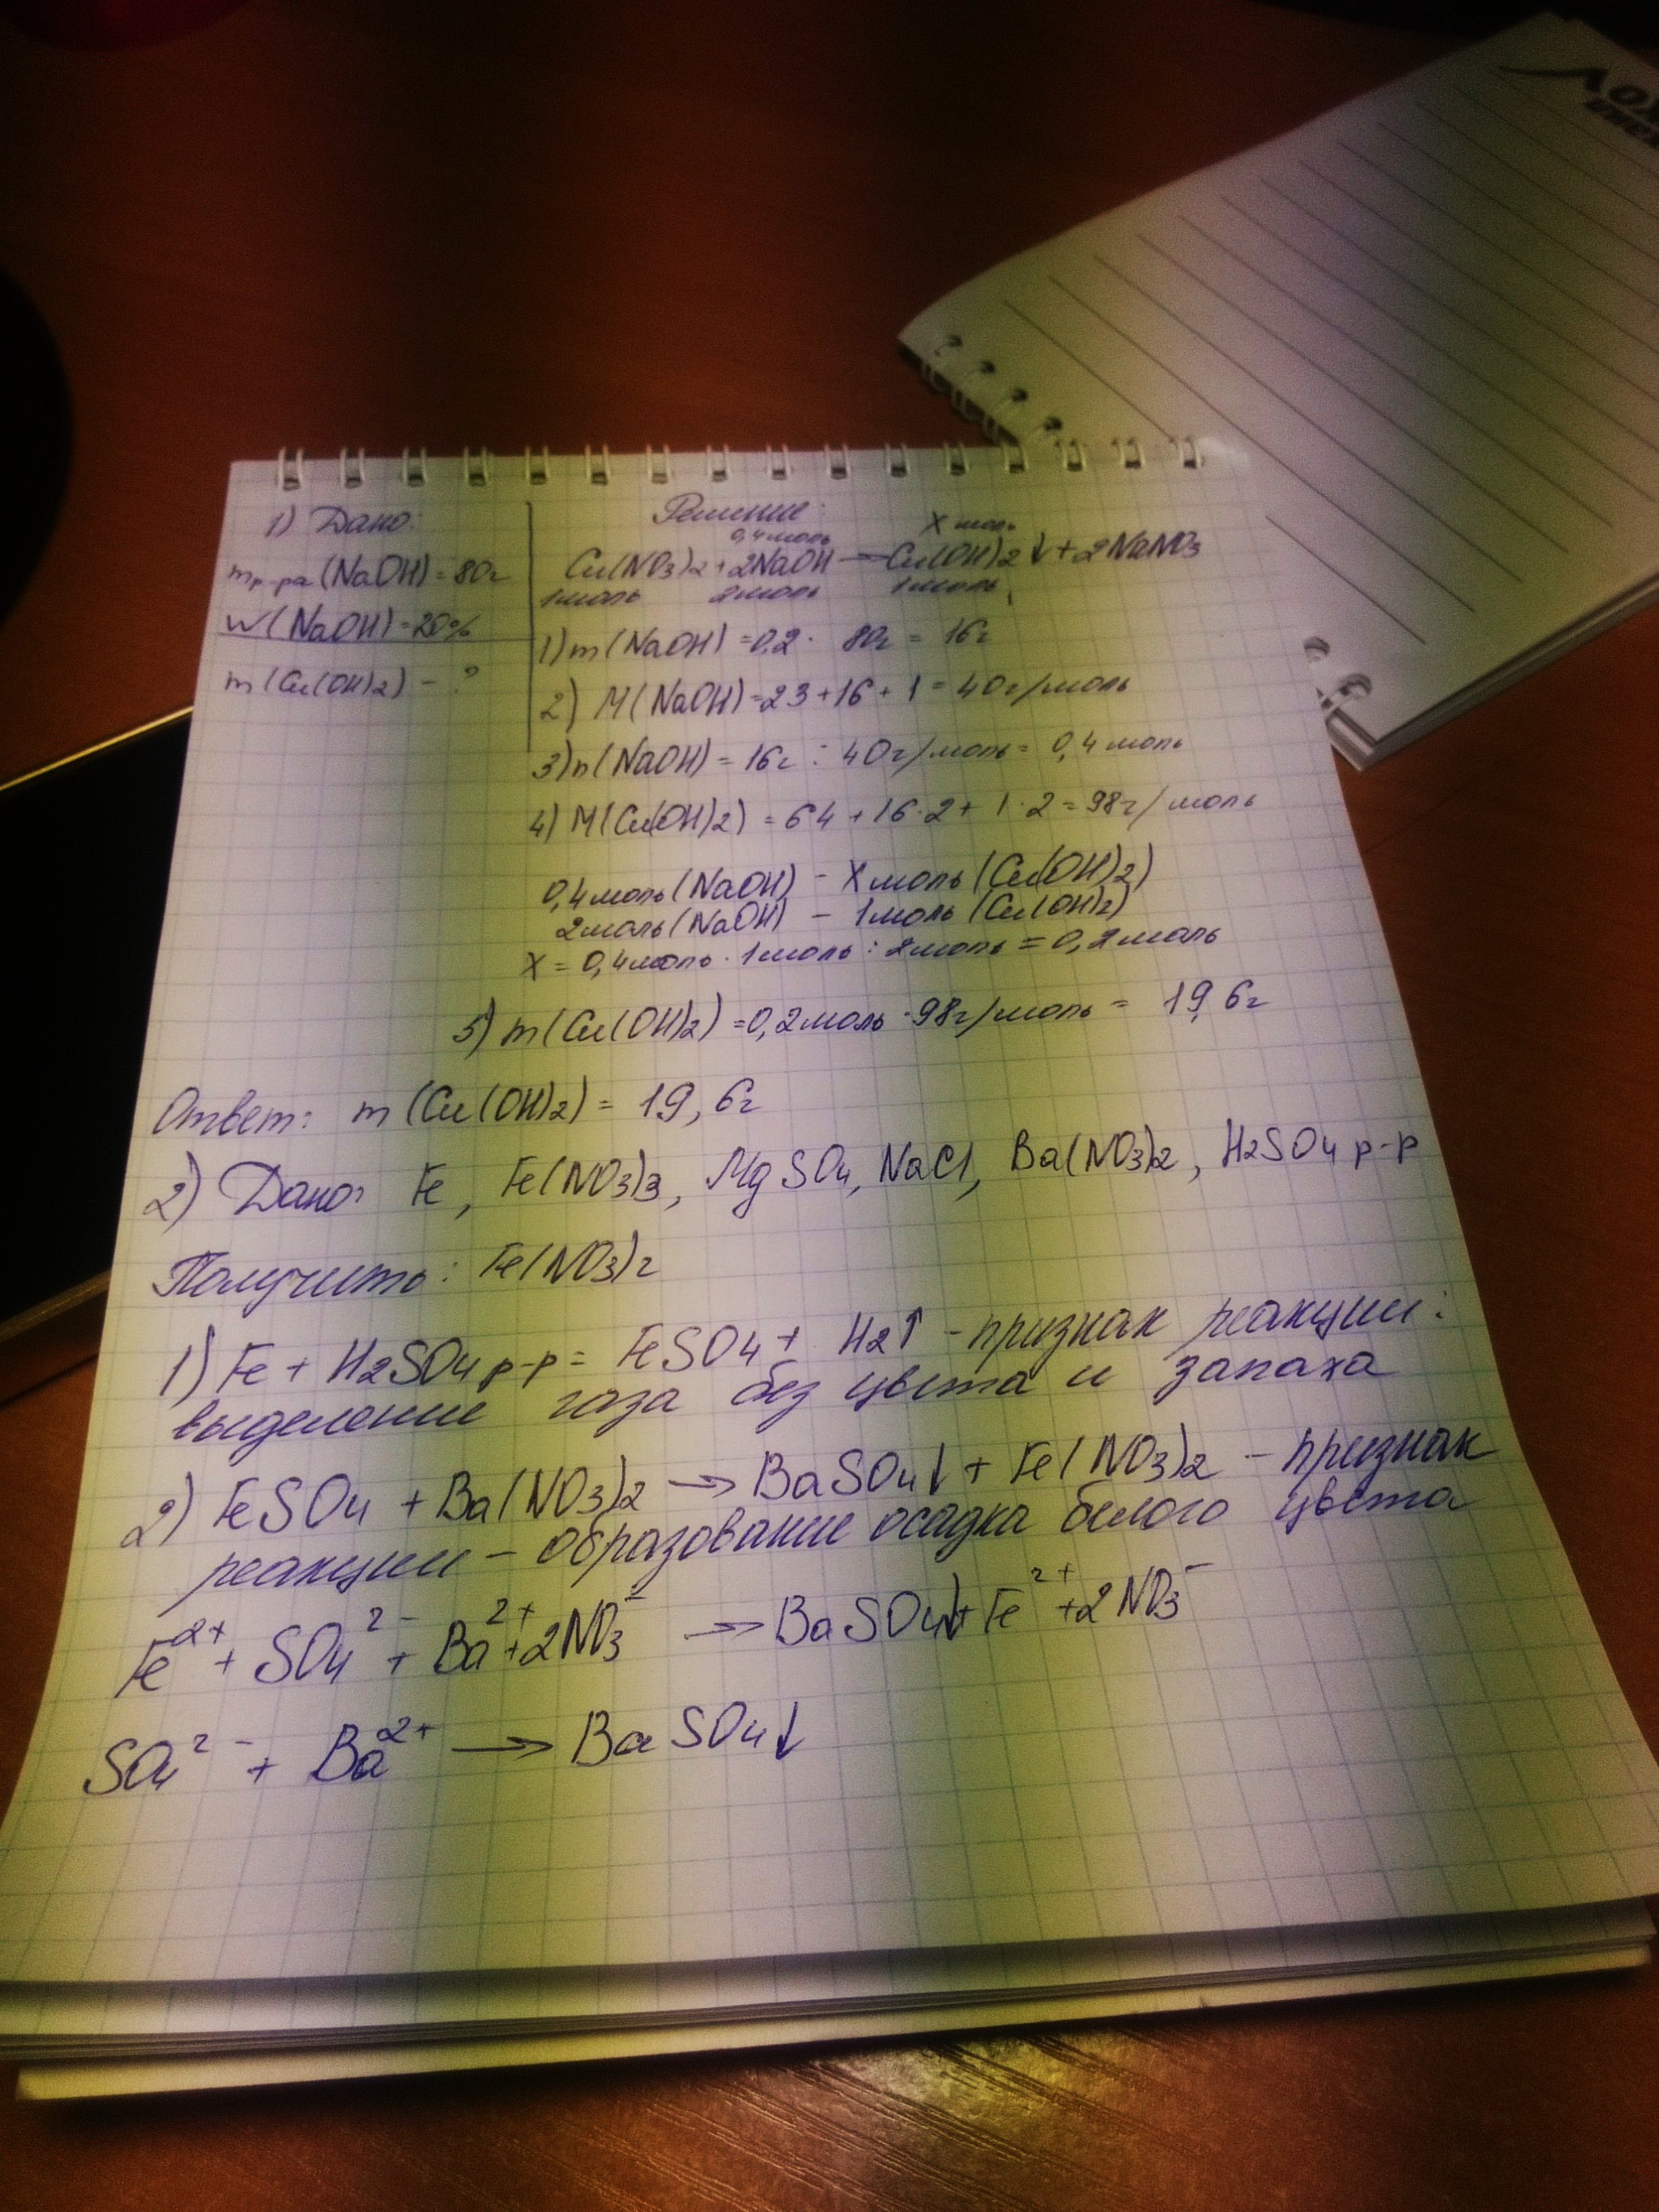 1) Дано:
mр-ра (NaOH) = 80г
w (NaOH) = 20%
m (Cu(OH)2) - ?
Решение:
0,4моль X моль
Cu(NO3)2 + 2NaOH → Cu(OH)2↓ + 2NaNO3
1моль 2моль 1моль
1) m (NaOH) = 0,2 · 80г = 16г
2) M (NaOH) = 23 + 16 + 1 = 40г/моль
3) n (NaOH) = 16г : 40г/моль = 0,4 моль
4) M (Cu(OH)2) = 64 + 16·2 + 1·2 = 98г/моль
0,4моль (NaOH) - X моль (Cu(OH)2)
2моль (NaOH) - 1моль (Cu(OH)2)
X = 0,4моль · 1моль : 2моль = 0,2моль
5) m (Cu(OH)2) = 0,2моль · 98г/моль = 19,6г
Ответ: m (Cu(OH)2) = 19,6г
2) Дано: Fe, Fe(NO3)3, MgSO4, NaCl, Ba(NO3)2, H2SO4 р-р
Получить: Fe(NO3)2
1) Fe + H2SO4 р-р = FeSO4 + H2↑ - признак реакции:
выделение газа без цвета и запаха
2) FeSO4 + Ba(NO3)2 → BaSO4↓ + Fe(NO3)2 - признак
реакции - образование осадка белого цвета
Fe2+ + SO4 2- + Ba2+ + 2NO3- → BaSO4↓ + Fe2+ + 2NO3-
SO4 2- + Ba2+ → BaSO4↓